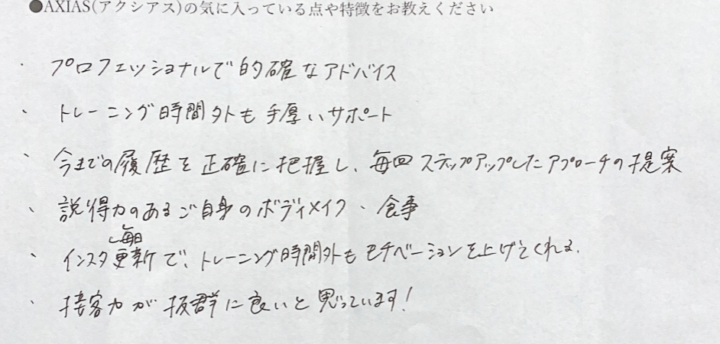 ●AXIAS(アクシアス)の気に入っている点や特徴をお教えください
・プロフェッショナルで的確なアドバイス
・トレーニング時間外も手厚いサポート
・今までの履歴を正確に把握し、毎回ステップアップしたアプローチの提案
・説得力のあるご自身のボディメイク、食事
・インスタ毎日更新で、トレーニング時間外もモチベーションを上げてくれる。
・接客力が抜群に良いと思っています!